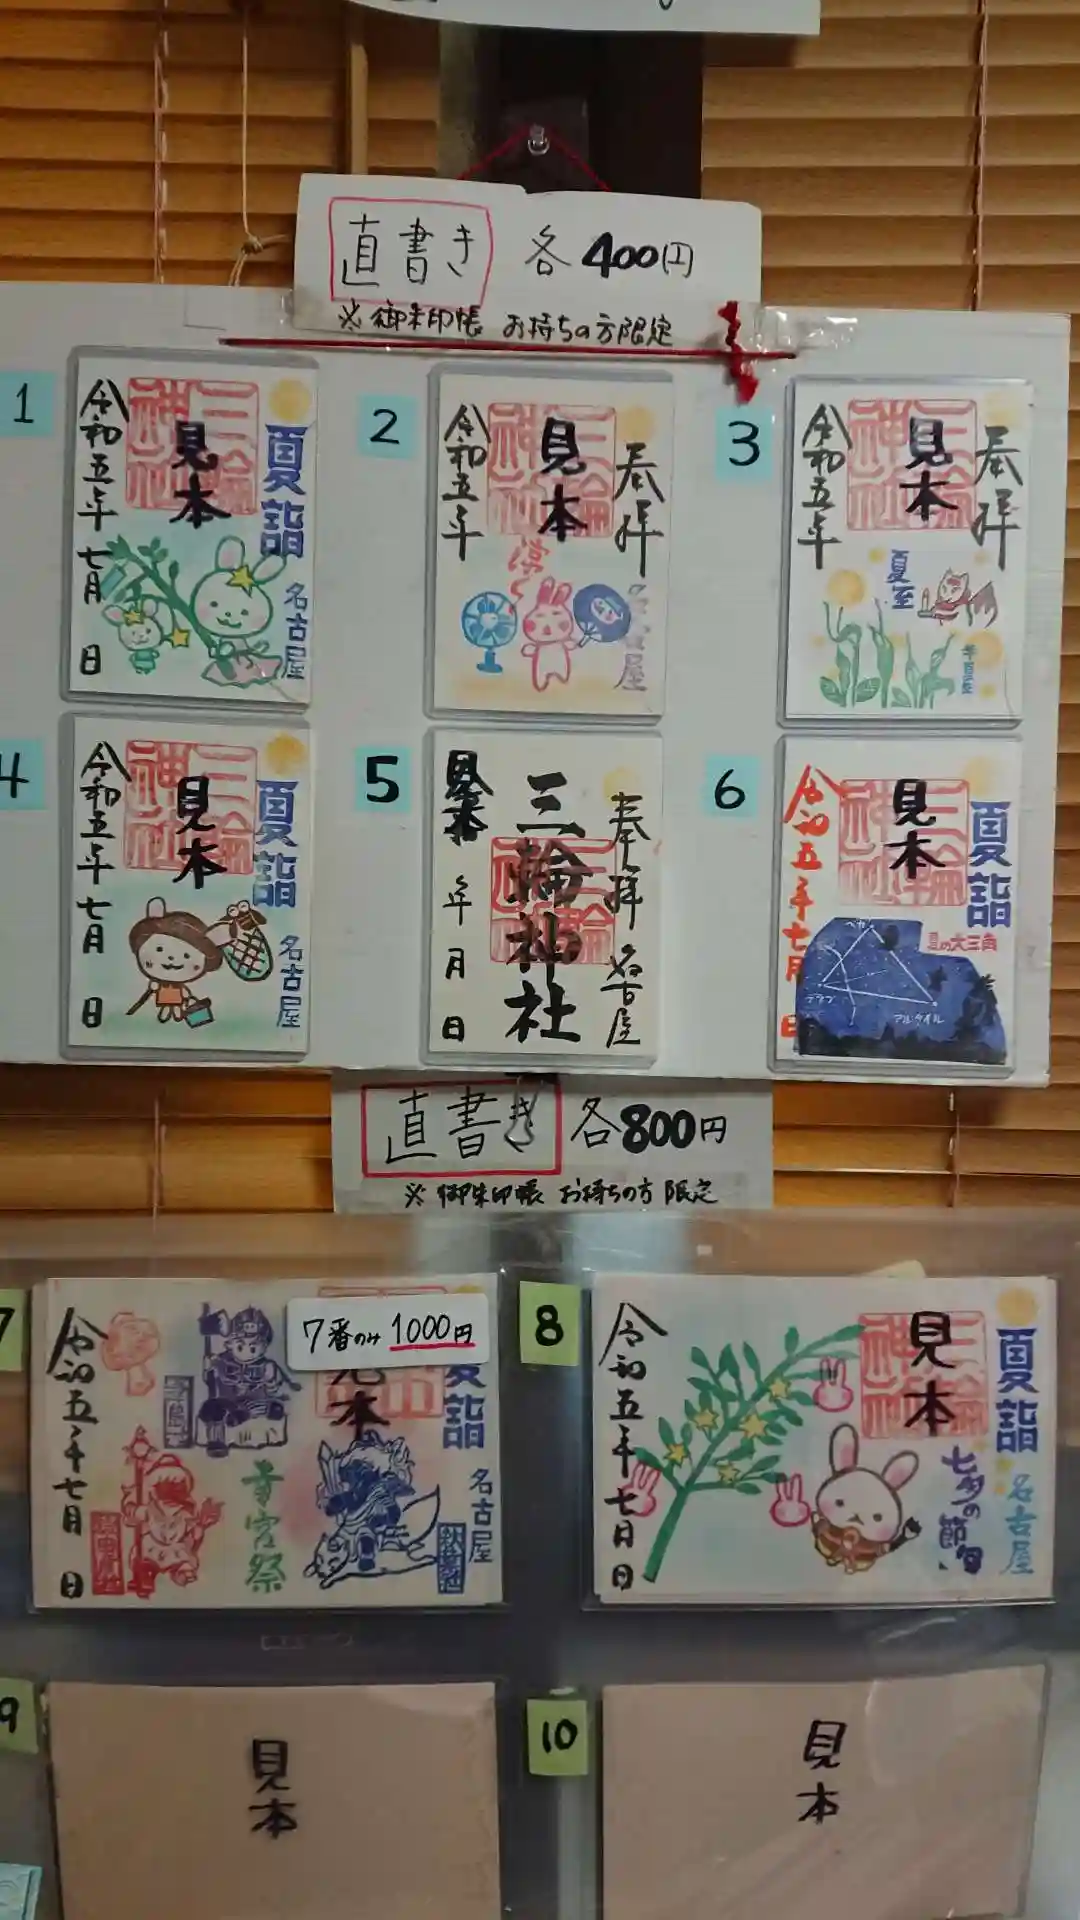 直書き 各400円
※御朱印帳 お持ちの方限定
1
夏詣
三輪神社
見本
令和五年 七月 日
名古屋
2
奉拝
三輪神社
見本
令和五年
涼
名古屋
3
奉拝
三輪神社
見本
令和五年
夏至
半夏生
4
夏詣
三輪神社
見本
令和五年 七月 日
名古屋
5
奉拝 名古屋
三輪神社
見本
年 月 日
6
夏詣
三輪神社
見本
令和五年七月 日
夏の大三角
ベガ
デネブ
アルタイル
直書き 各800円
※御朱印帳 お持ちの方 限定
7
7番のみ 1000円
夏詣
見本
令和五年七月 日
寺宮祭
名古屋
8
夏詣
三輪神社
見本
令和五年七月 日
七夕の節句
名古屋
9
見本
10
見本